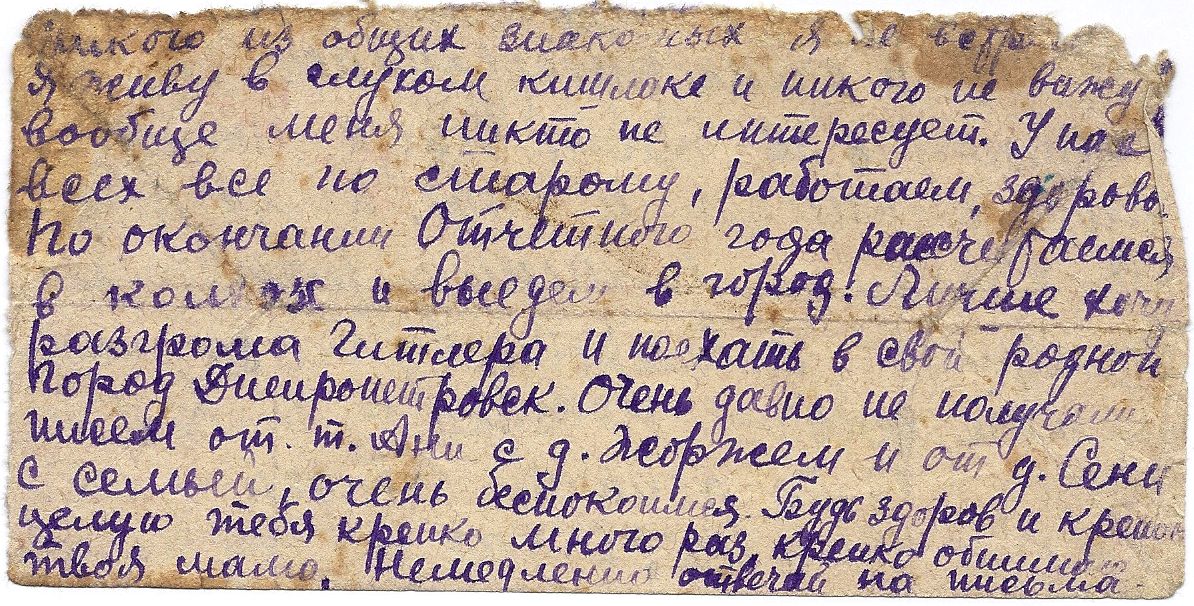 никого из общих знакомых я не встреч
я живу в глухом кишлаке и никого не вижу
вообще меня никто не интересует. У нас
всех все по старому, работаем, здоровы.
По окончании Отчетного года рассчитаемся
в колхоз и выедем в город. Лучше хочу
разгрома Гитлера и поехать в свой родной
город Днепропетровск. Очень давно не получали
писем от. т. Ани с д. Жоржем и от д. Сени
с семьей, очень беспокоимся. Будь здоров и крепок
целую тебя крепко много раз, крепко обнимаю
твоя мама. Немедленно отвечай на письма.